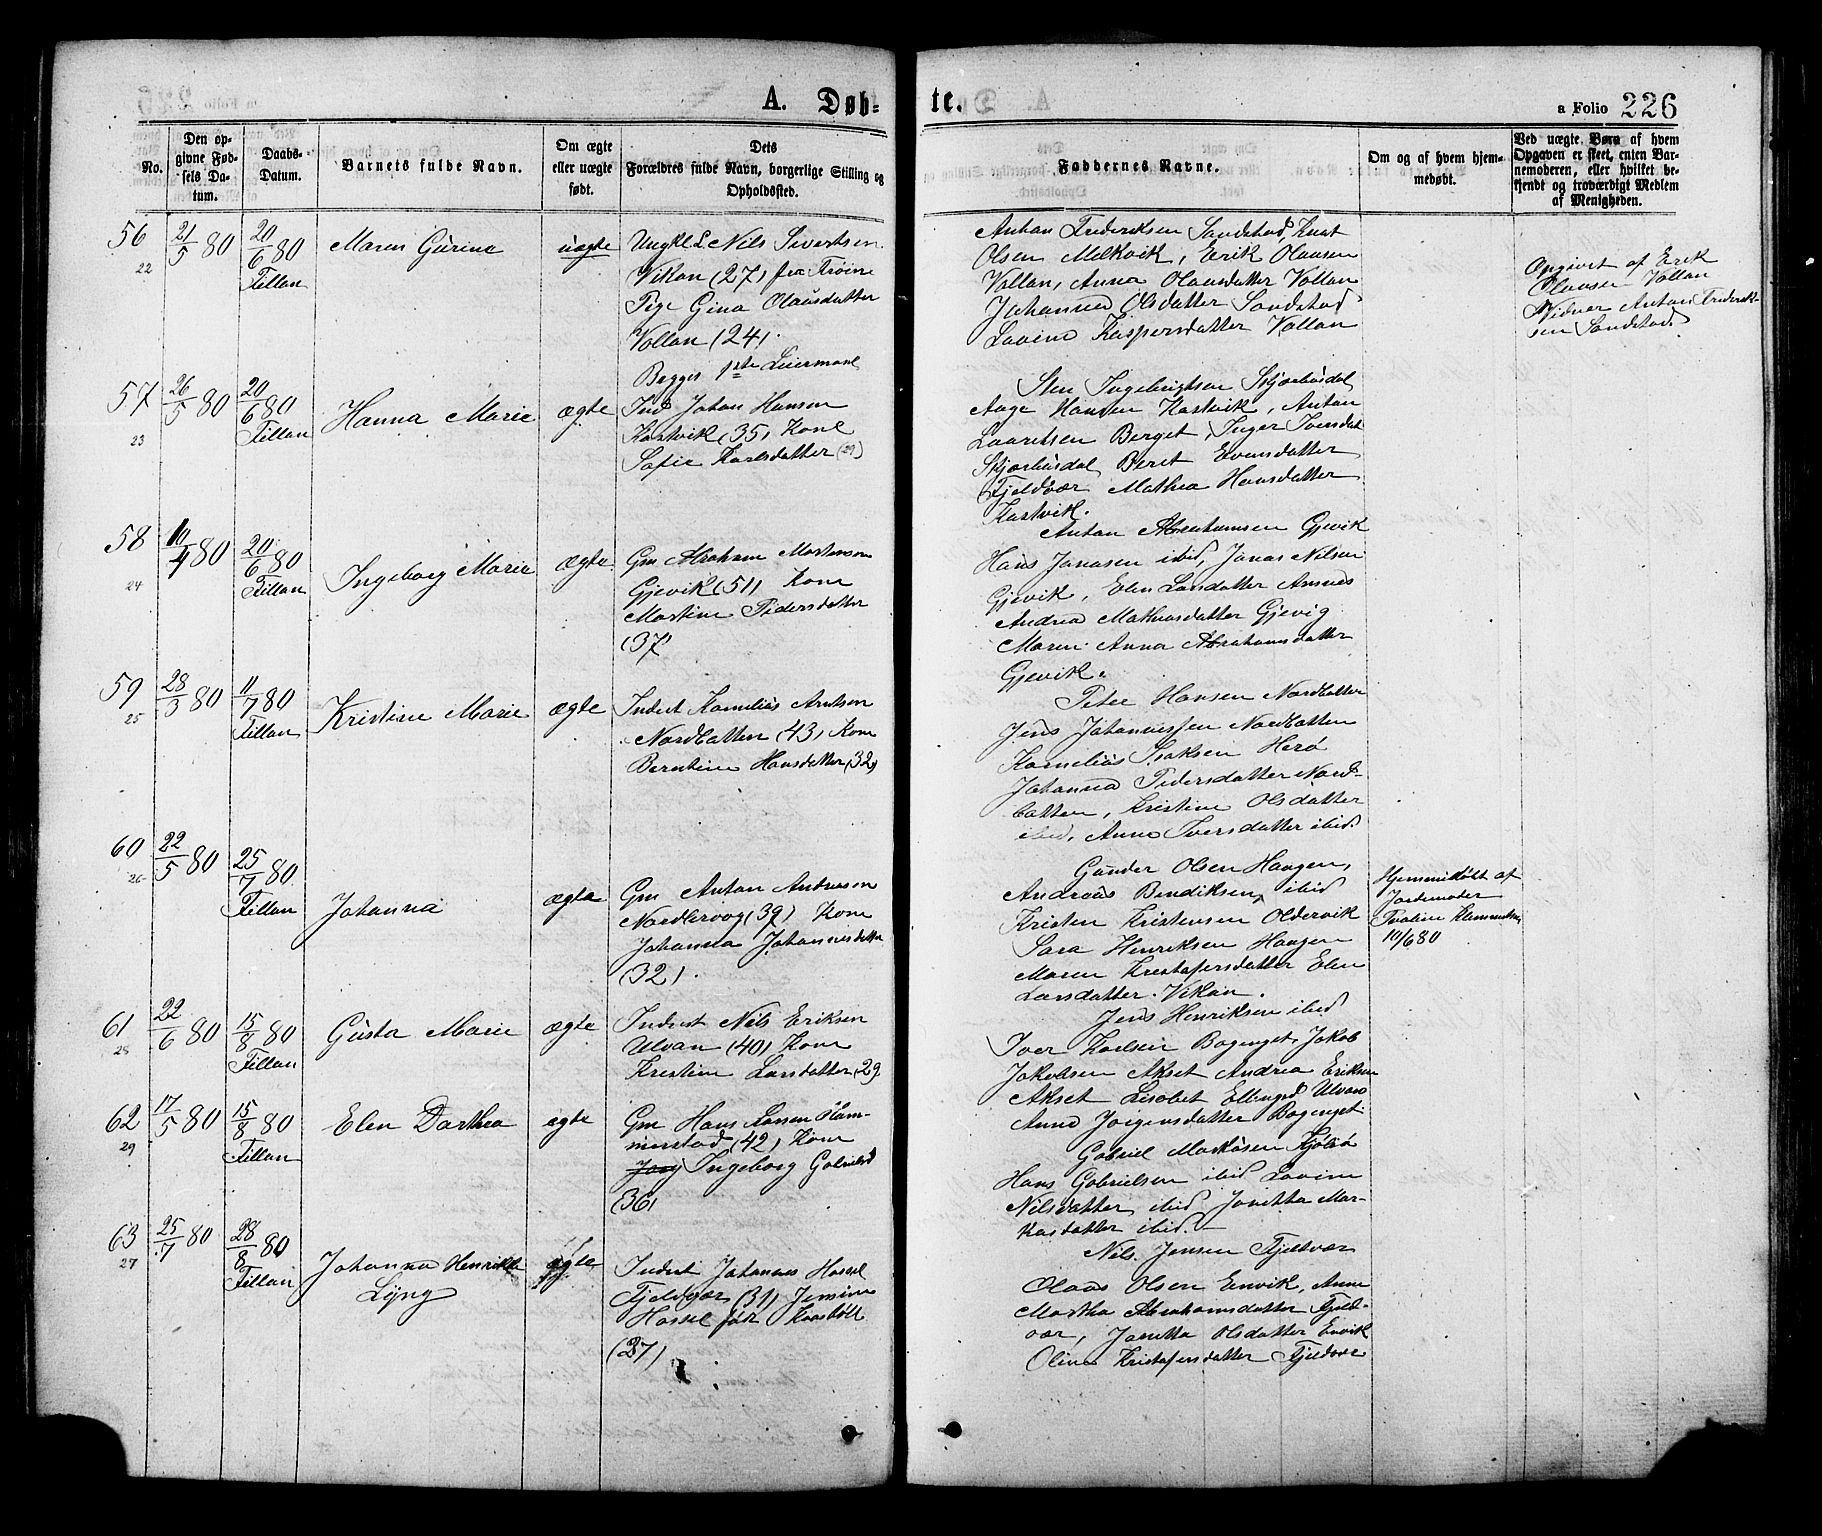 A. Døb-
te.
a Folio 226
No.
Den op-
givne Fød-
sels Da-
tum.
Daabs-
Datum.
Barnets fulde Navn.
Om ægte
eller uægte
født.
Dets
Forældres fulde Navn, borgerlige Stilling og
Opholdssted.
Faddernes Navne.
Om og af hvem hjem-
medøbt.
Ved uægte Børn af hvem
Opgaven er skeet, enten Bar-
nemoderen, eller hvilket be-
kjendt og troværdigt Medlem
af Menigheden.
56
22
21/5 80
20/6 80
Fillan
Maren Gurine
uægte
Ungkl Nils Sivertsen
Vikan (27) fra Frøien
Pige Gina Olausdatter
Vollan (24).
Begges 1ste Leiermaal
Anton Frederiksen Sandstad, Knut
Olsen Melkvik, Erik Olausen
Vollan, Anna Olausdatter Vollan
Johanna Olsdatter Sandstad
Lovine Kaspersdatter Vollan
Opgivet af Erik
Olausen Vollan
Vidner Anton Frederik-
sen Sandstad
57
23
26/5 80
20/6 80
Fillan
Hanna Marie
ægte
Ind Johan Hansen
Kastvik (35) Kone
Sofie Karlsdatter (29)
Sten Ingebrigtsen Skjærbusdal
Aage Hansen Kastvik, Anton
Lauritsen Berget, Inger Iversdat
Skjærbusdal Beret Evensdatter
Fjeldvær Mathea Hansdatter
Kastvik.
58
24
10/4 80
20/6 80
Fillan
Ingeborg Marie
ægte
Gm Abraham Mortensen
Gjevik (51) Kone
Martine Pedersdatter
(37)
Anton Abrahamsen Gjevik
Hans Jonasen ibid, Jonas Nilsen
Gjevik, Elen Larsdatter Ansnes
Andrea Mathiasdatter Gjevig
Maren Anna Abrahamsdatter
Gjevik.
59
25
28/3 80
11/7 80
Fillan
Kristine Marie
ægte
Inderst Kornelius Arntsen
Nordbotten (43) Kone
Berntine Hansdatter (32)
Peter Hansen Nordbotten
Jens Johannessen Nordbotten
Kornelius Isaksen Herø
Johanna Pedersdatter Nord-
botten, Kristine Olsdatter
ibid, Anna Iversdatter ibid.
60
26
22/5 80
25/7 80
Fillan
Johanna
ægte
Gm Anton Andersen
Nordbrovog (39) Kone
Johanna Johannesdatter
(32).
Gunder Olsen Haugen,
Andreas Bendiksen ibid
Kristen Kristensen Oldervik
Sara Henriksen Haugen
Maren Kristofersdatter Elen
Larsdatter Vikan.
Hjemmedøbt af
Jordemoder
Klemmetsen
10/6 80
61
28
22/6 80
15/8 80
Fillan
Gusta Marie
ægte
Inderst Nils Eriksen
Ulvan (40) Kone
Kristine Larsdatter (29
Jens Henriksen ibid
Iver Karlsen Bogenget, Jakob
Jakobsen Akset Andrea Eriksen
Akset Lisobet Ellingsd Ulvan
Anna Jørgensdatter Bogenget
62
29
17/5 80
15/8 80
Fillan
Elen Dorthea
ægte
Gm Hans Larsen Ham-
merstad (42) Kone
Ingeborg Gabrielsd
(36)
Gabriel Markusen Fjølø
Hans Gabrielsen ibid Lovine
Nilsdatter ibid Jonetta Mar-
kusdatter ibid.
63
27
25/7 80
28/8 80
Fillan
Johanna Henrikke
Lyng
ægte
Inderst Johannes Hassel
Fjeldvær (31) Jensine
Hassel født Kaasbøll
(27)
Nils Jensen Fjeldvær
Olaus Olsen Envik, Anne
Martha Abrahamsdatter Fjeld-
vær, Jonetta Olsdatter Envik
Oline Kristofersdatter Fjeldvær